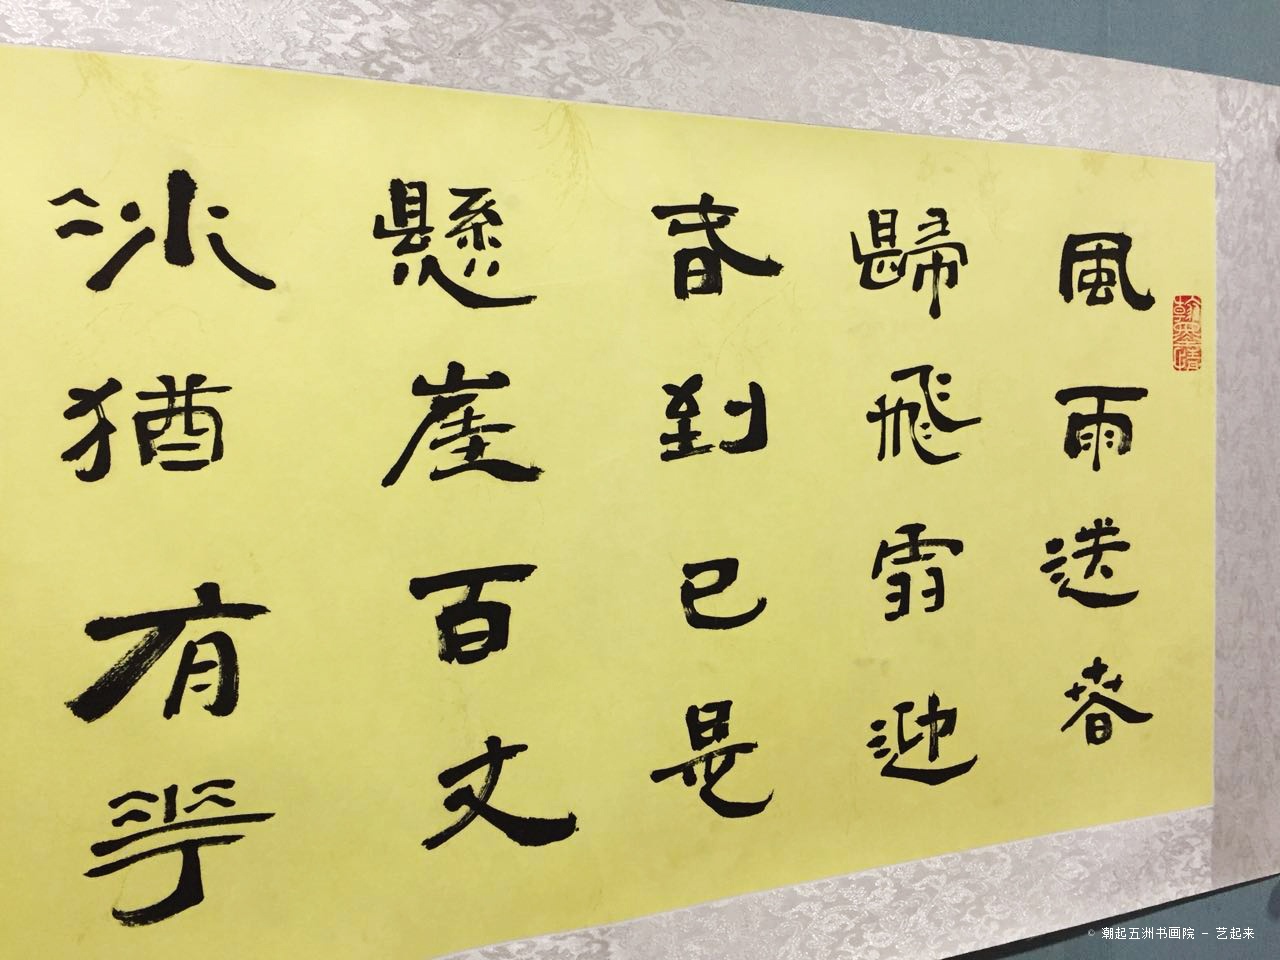 風雨送春
歸飛雪迎
春到已是
懸崖百丈
冰猶有華
© 潮起五洲书画院 - 艺起来